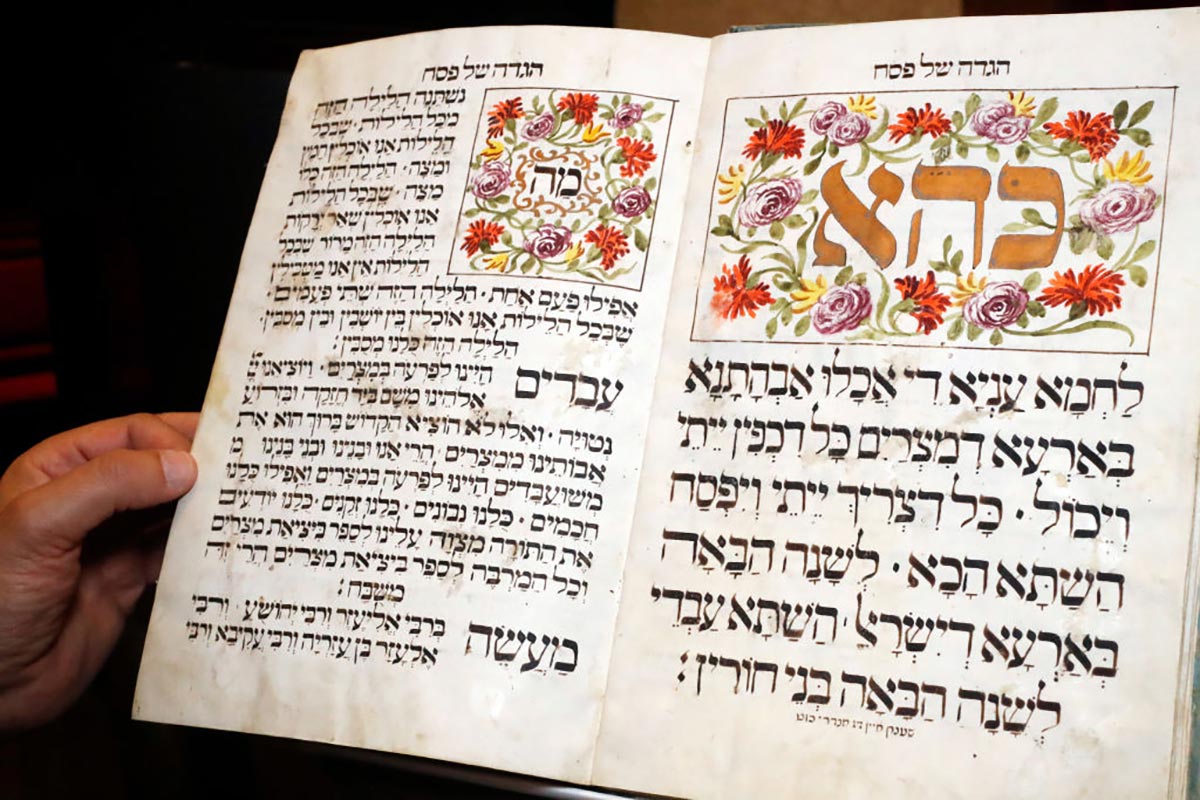 הגדה של פסח
כהא
לחמא עניא די אכלו אבהתנא
בארעא דמצרים כל דכפין ייתי
ויכול · כל דצריך ייתי ויפסח
השתא הכא · לשנה הבאה
בארעא דישראל · השתא עבדי
לשנה הבאה בני חורין:
הגדה של פסח
מה
נשתנה הלילה הזה
מכל הלילות · שבכל
הלילות אנו אוכלין חמץ
ומצה · הלילה הזה כולו
מצה · שבכל הלילות
אנו אוכלין שאר ירקות
הלילה הזה מרור שבכל
הלילות אין אנו מטבילין
אפילו פעם אחת · הלילה הזה שתי פעמים ·
שבכל הלילות אנו אוכלין בין יושבין ובין מסבין ·
הלילה הזה כלנו מסבין:
עבדים היינו לפרעה במצרים · ויוציאנו יי
אלהינו משם ביד חזקה ובזרוע
נטויה · ואלו לא הוציא הקדוש ברוך הוא את
אבותינו ממצרים · הרי אנו ובנינו ובני בנינו
משועבדים היינו לפרעה במצרים ואפילו כלנו
חכמים · כלנו נבונים · כלנו זקנים · כלנו יודעים
את התורה מצוה עלינו לספר ביציאת מצרים
וכל המרבה לספר ביציאת מצרים הרי זה
משבח:
מעשה ברבי אליעזר ורבי יהושע · ורבי
אלעזר בן עזריה ורבי עקיבא ורבי